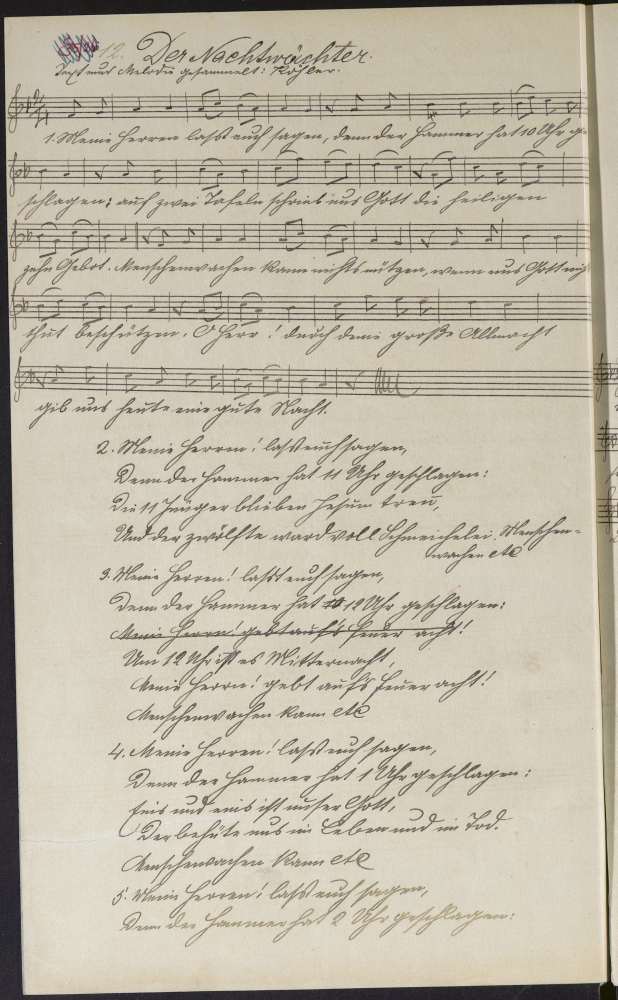 12. Der Nachtwächter.
Text und Melodie gesammelt: Köhler.
1. Meine Herren lasst euch sagen, denn der Hammer hat 10 Uhr ge-
schlagen; auf zwei Tafeln schrieb uns Gott die heiligen
zehn Gebot. Menschenwachen kann nichts nützen, wenn uns Gott nich
thut beschützen. O Herr! durch deine große Allmacht
gib uns heute eine gute Nacht.
2. Meine Herren! lasst euch sagen,
Denn der Hammer hat 11 Uhr geschlagen:
Die 11 Jünger blieben Jesum treu,
Und der zwölfte ward voll Schmeichelei. Menschen-
wachen etc
3. Meine Herren! lasst euch sagen,
Denn der Hammer hat 12 Uhr geschlagen:
Meine Herren! gebt auf's Feuer acht!
Um 12 Uhr ist es Mitternacht,
Meine Herrn! gebt aufs Feuer acht!
Menschenwachen kann etc
4. Meine Herren! lasst euch sagen,
Denn der Hammer hat 1 Uhr geschlagen:
Eins und eins ist unser Gott,
Der behüte uns im Leben und im Tod.
Menschenwachen kann etc
5. Meine Herren! lasst euch sagen,
Denn der Hammer hat 2 Uhr geschlagen: